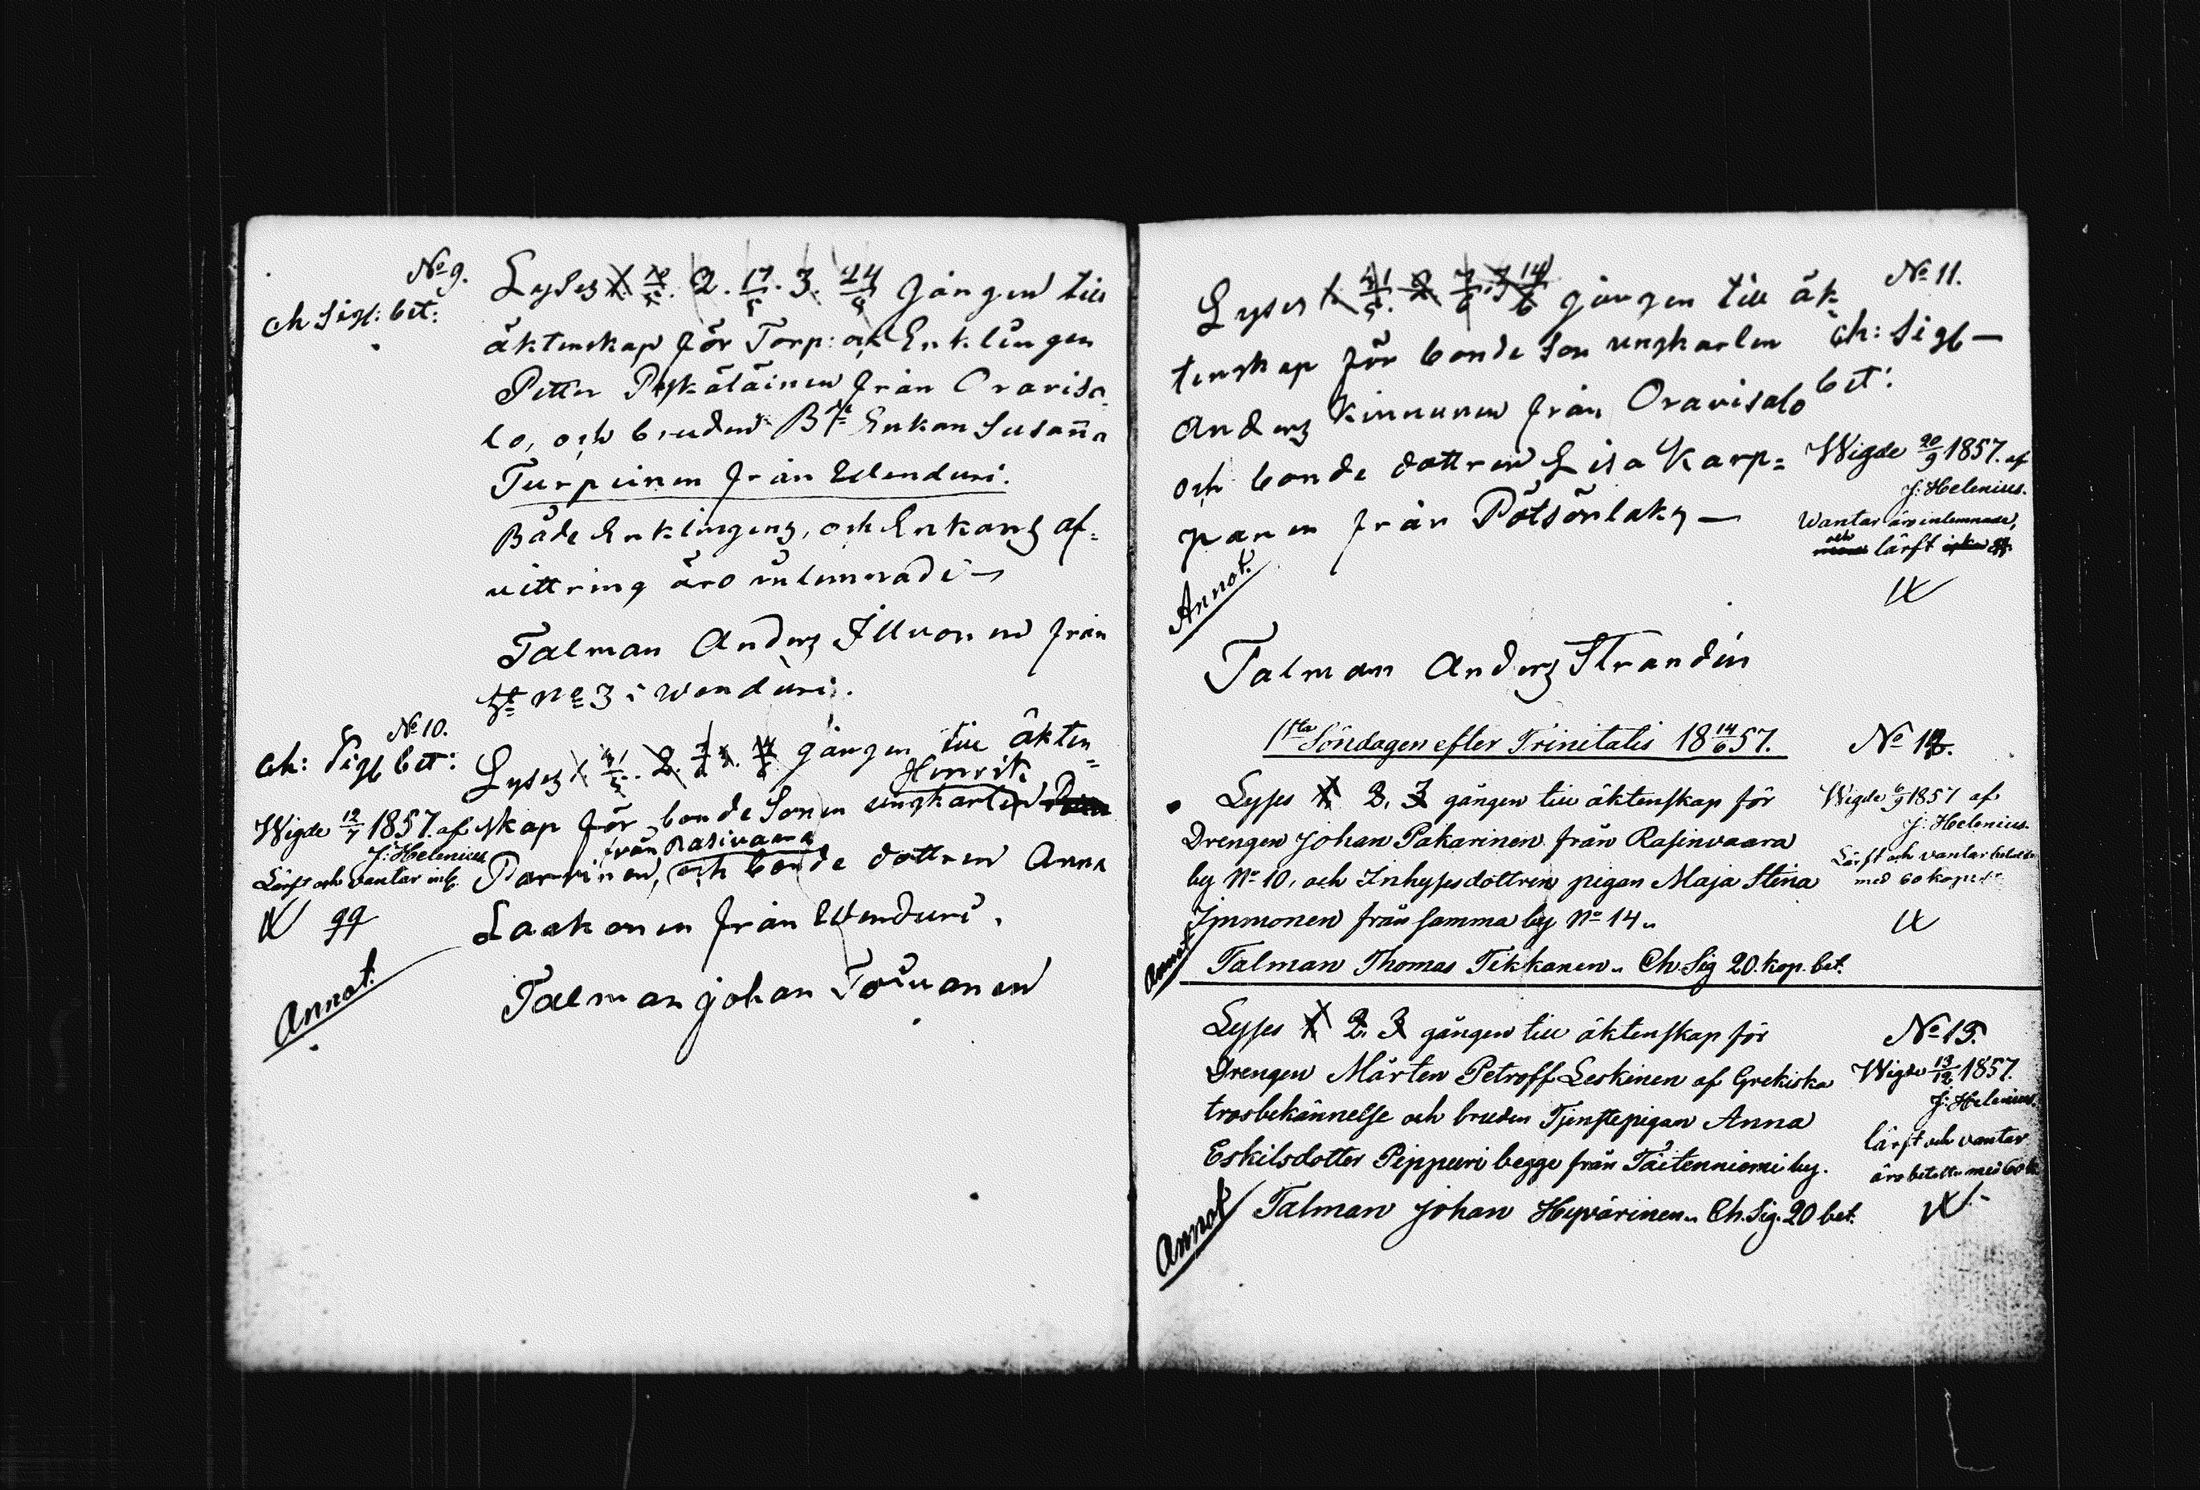 No 9.
Ch Sigl: bet:
Lyses 1. 10/5. 2. 17/5. 3. 24/5 gången till
äktenskap för Torp: och Enklingen
Petter Pyykäläinen från Oraviså-
lo, och bruden B:de Enkan Susanna
Turpeinen från Wenduri.
Både Enklingens, och Enkans af-
vittring äro inlemnade —
Talman Anders Illvonen från
No 3 i Wenduri.
No 10.
Ch: Sigl bet:
Wigde 12/7 1857. af
J: Helenius
Lärft och vantar inl.
Annot.
Lyses 1. 31/5. 2. 7/6. 3. 14/6 gången till äkten-
skap för bonde Sonen ungkarlen Henrik
Parvinen, från Rasivaara och bonde dottren Anna
Laakonen från Wenduri.
Talman Johan Toivanen
No 11.
Ch: Sigl —
bet:
Lyses 1. 31/5. 2. 7/6. 3. 14/6 gången till äk-
tenskap för bonde Son ungkarlen
Anders Kinnunen från Oravisalo
och bonde dottren Lisa Karp-
panen från Pötsönlaks —
Wigde 20/9 1857. af
J: Helenius.
Wantar äro inlemnade,
och lärft
Annot.
Talman Anders Strandin
1sta Söndagen efter Trinitatis 18 14/6 57.
No 12.
Lyses 1. 2. 3 gången till äktenskap för
Drengen Johan Pakarinen från Rasinvaara
by No 10, och Inhysesdottren pigan Maja Stina
Immonen från samma by No 14.
Talman Thomas Tikkanen. Ch. Sig 20. kop. bet.
Wigde 6/9 1857 af
J: Helenius.
Lärft och vantar betalte
med 60 kop.
Annot
Lyses 1. 2. 3 gången till äktenskap för
Drengen Mårten Petroff Leskinen af Grekiska
trosbekännelse och bruden Tjenstepigan Anna
Eskilsdotter Pippuri begge från Täitenniemi by.
Talman Johan Hyvärinen. Ch. Sig. 20 bet.
No 13.
Wigde 13/12 1857.
J: Helenius.
lärft och vantar
äro betalte med 60 k.
Annot